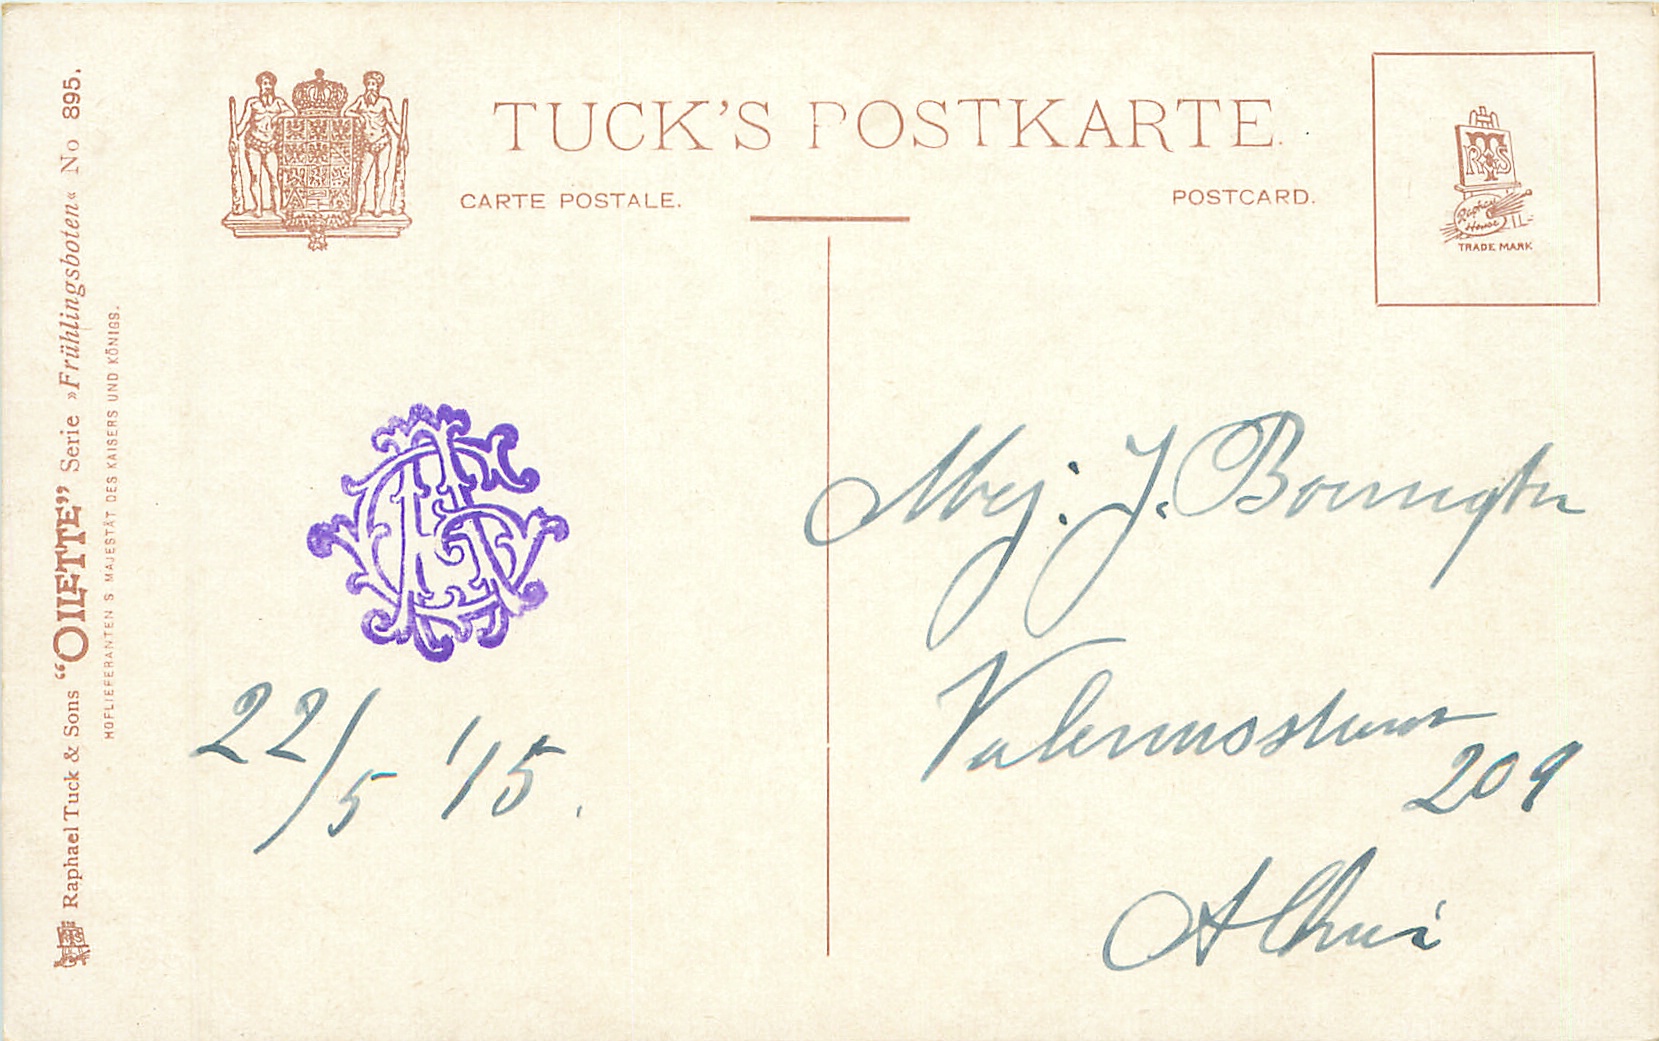 TUCK'S POSTKARTE.
CARTE POSTALE.
POSTCARD.
RTS
Raphael House
TRADE MARK
Raphael Tuck & Sons “OILETTE” Serie »Frühlingsboten« No 895.
HOFLIEFERANTEN S MAJESTÄT DES KAISERS UND KÖNIGS.
22/5 '15.
Mej. J.
209